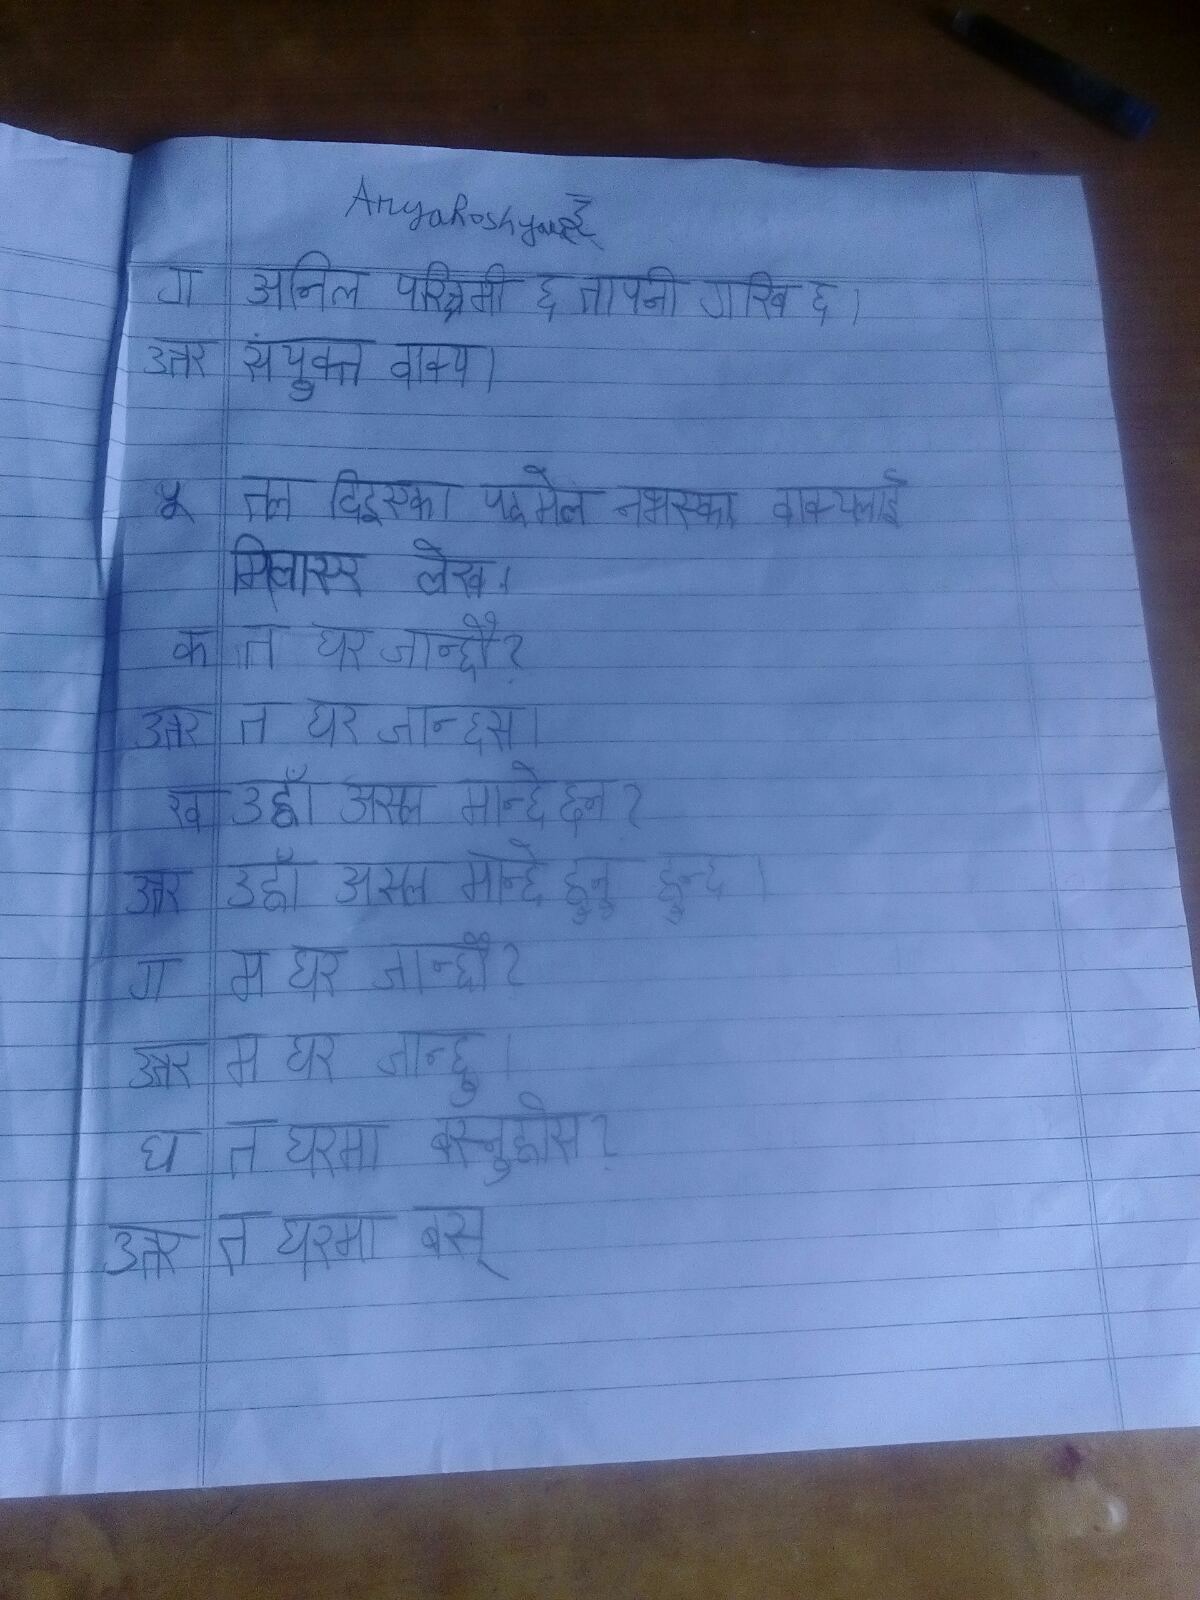 ग अनिल परिश्रमी छ तापनी गरिब छ।
उत्तर संयुक्त वाक्य।
५ तल दिइएका पदमेल नभएका वाक्यलाई
मिलाएर लेख।
क त घर जान्छौ?
उत्तर त घर जान्छस।
ख उहाँ असल मान्छे छन?
उत्तर उहाँ असल मान्छे हुनु हुन्छ।
ग म घर जान्छौ?
उत्तर म घर जान्छु।
घ त घरमा बस्नुहोस?
उत्तर त घरमा बस्